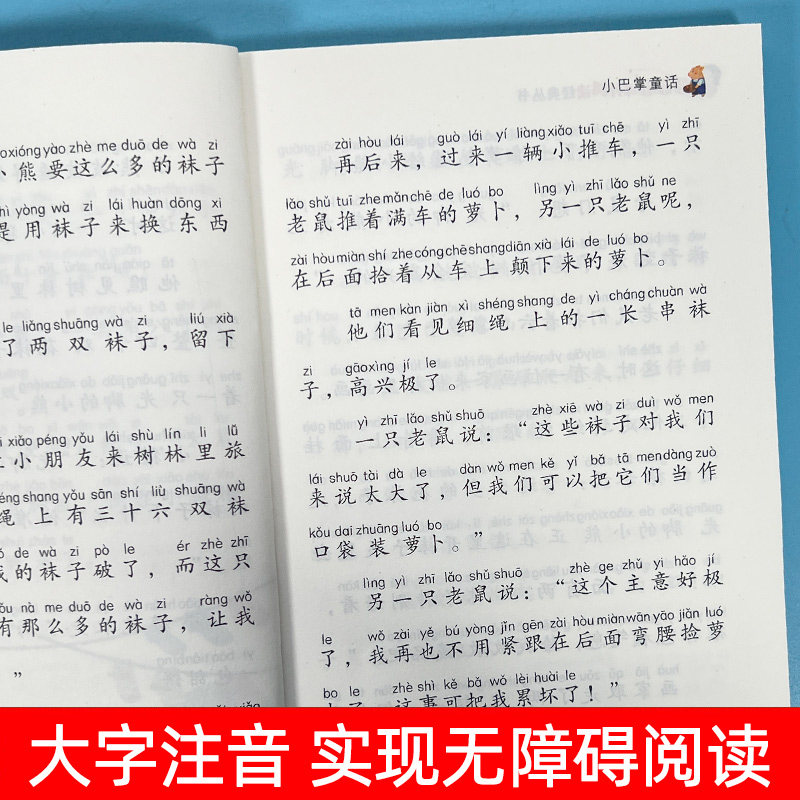 oxióng yào zhè me duō de wà zi
小熊要这么多的袜子
shì yòng wà zi lái huàn dōng xi
是用袜子来换东西
le liǎng shuāng wà zi liú xià
了两双袜子，留下
xiǎo péng yǒu lái shù lín li lǚ
小朋友来树林里旅
éng shang yǒu sān shí liù shuāng wà
绳上有三十六双袜
de wà zi pò le ér zhè zhī
我的袜子破了，而这只
ǒu nà me duō de wà zi ràng wǒ
有那么多的袜子，让我
”
小巴掌童话
zài hòu lái guò lái yí liàng xiǎo tuī chē yì zhī
再后来，过来一辆小推车，一只
lǎo shǔ tuī zhe mǎn chē de luó bo lìng yì zhī lǎo shǔ ne
老鼠推着满车的萝卜，另一只老鼠呢，
zài hòu miàn shí zhe cóng chē shang diān xià lái de luó bo
在后面拾着从车上颠下来的萝卜。
tā men kàn jiàn xì shéng shang de yì cháng chuàn wà
他们看见细绳上的一长串袜
zi gāo xìng jí le
子，高兴极了。
yì zhī lǎo shǔ shuō zhè xiē wà zi duì wǒ men
一只老鼠说：“这些袜子对我们
lái shuō tài dà le dàn wǒ men kě yǐ bǎ tā men dàng zuò
来说太大了，但我们可以把它们当作
kǒu dai zhuāng luó bo
口袋装萝卜。”
lìng yì zhī lǎo shǔ shuō zhè ge zhǔ yi hǎo jí
另一只老鼠说：“这个主意好极
le wǒ zài yě bú yòng jǐn gēn zài hòu miàn wān yāo jiǎn luó
了，我再也不用紧跟在后面弯腰捡萝
bo le zhè shì kě bǎ wǒ lèi huài le
卜了，这事可把我累坏了！”
大字注音 实现无障碍阅读